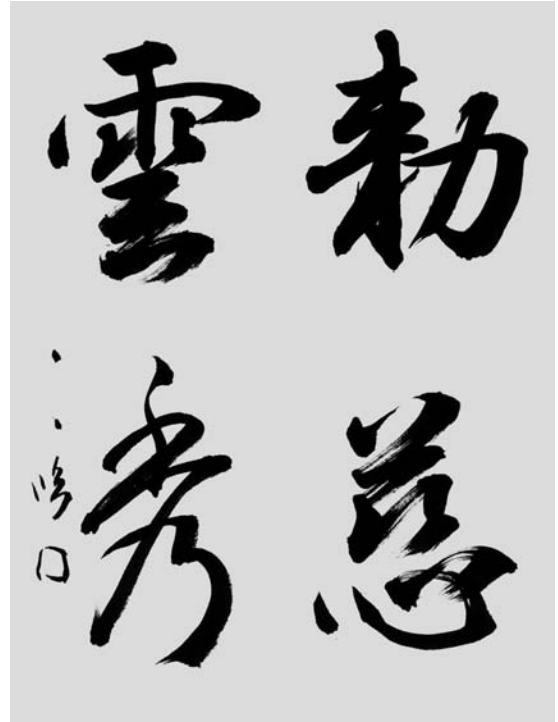 勅慈
雲秀